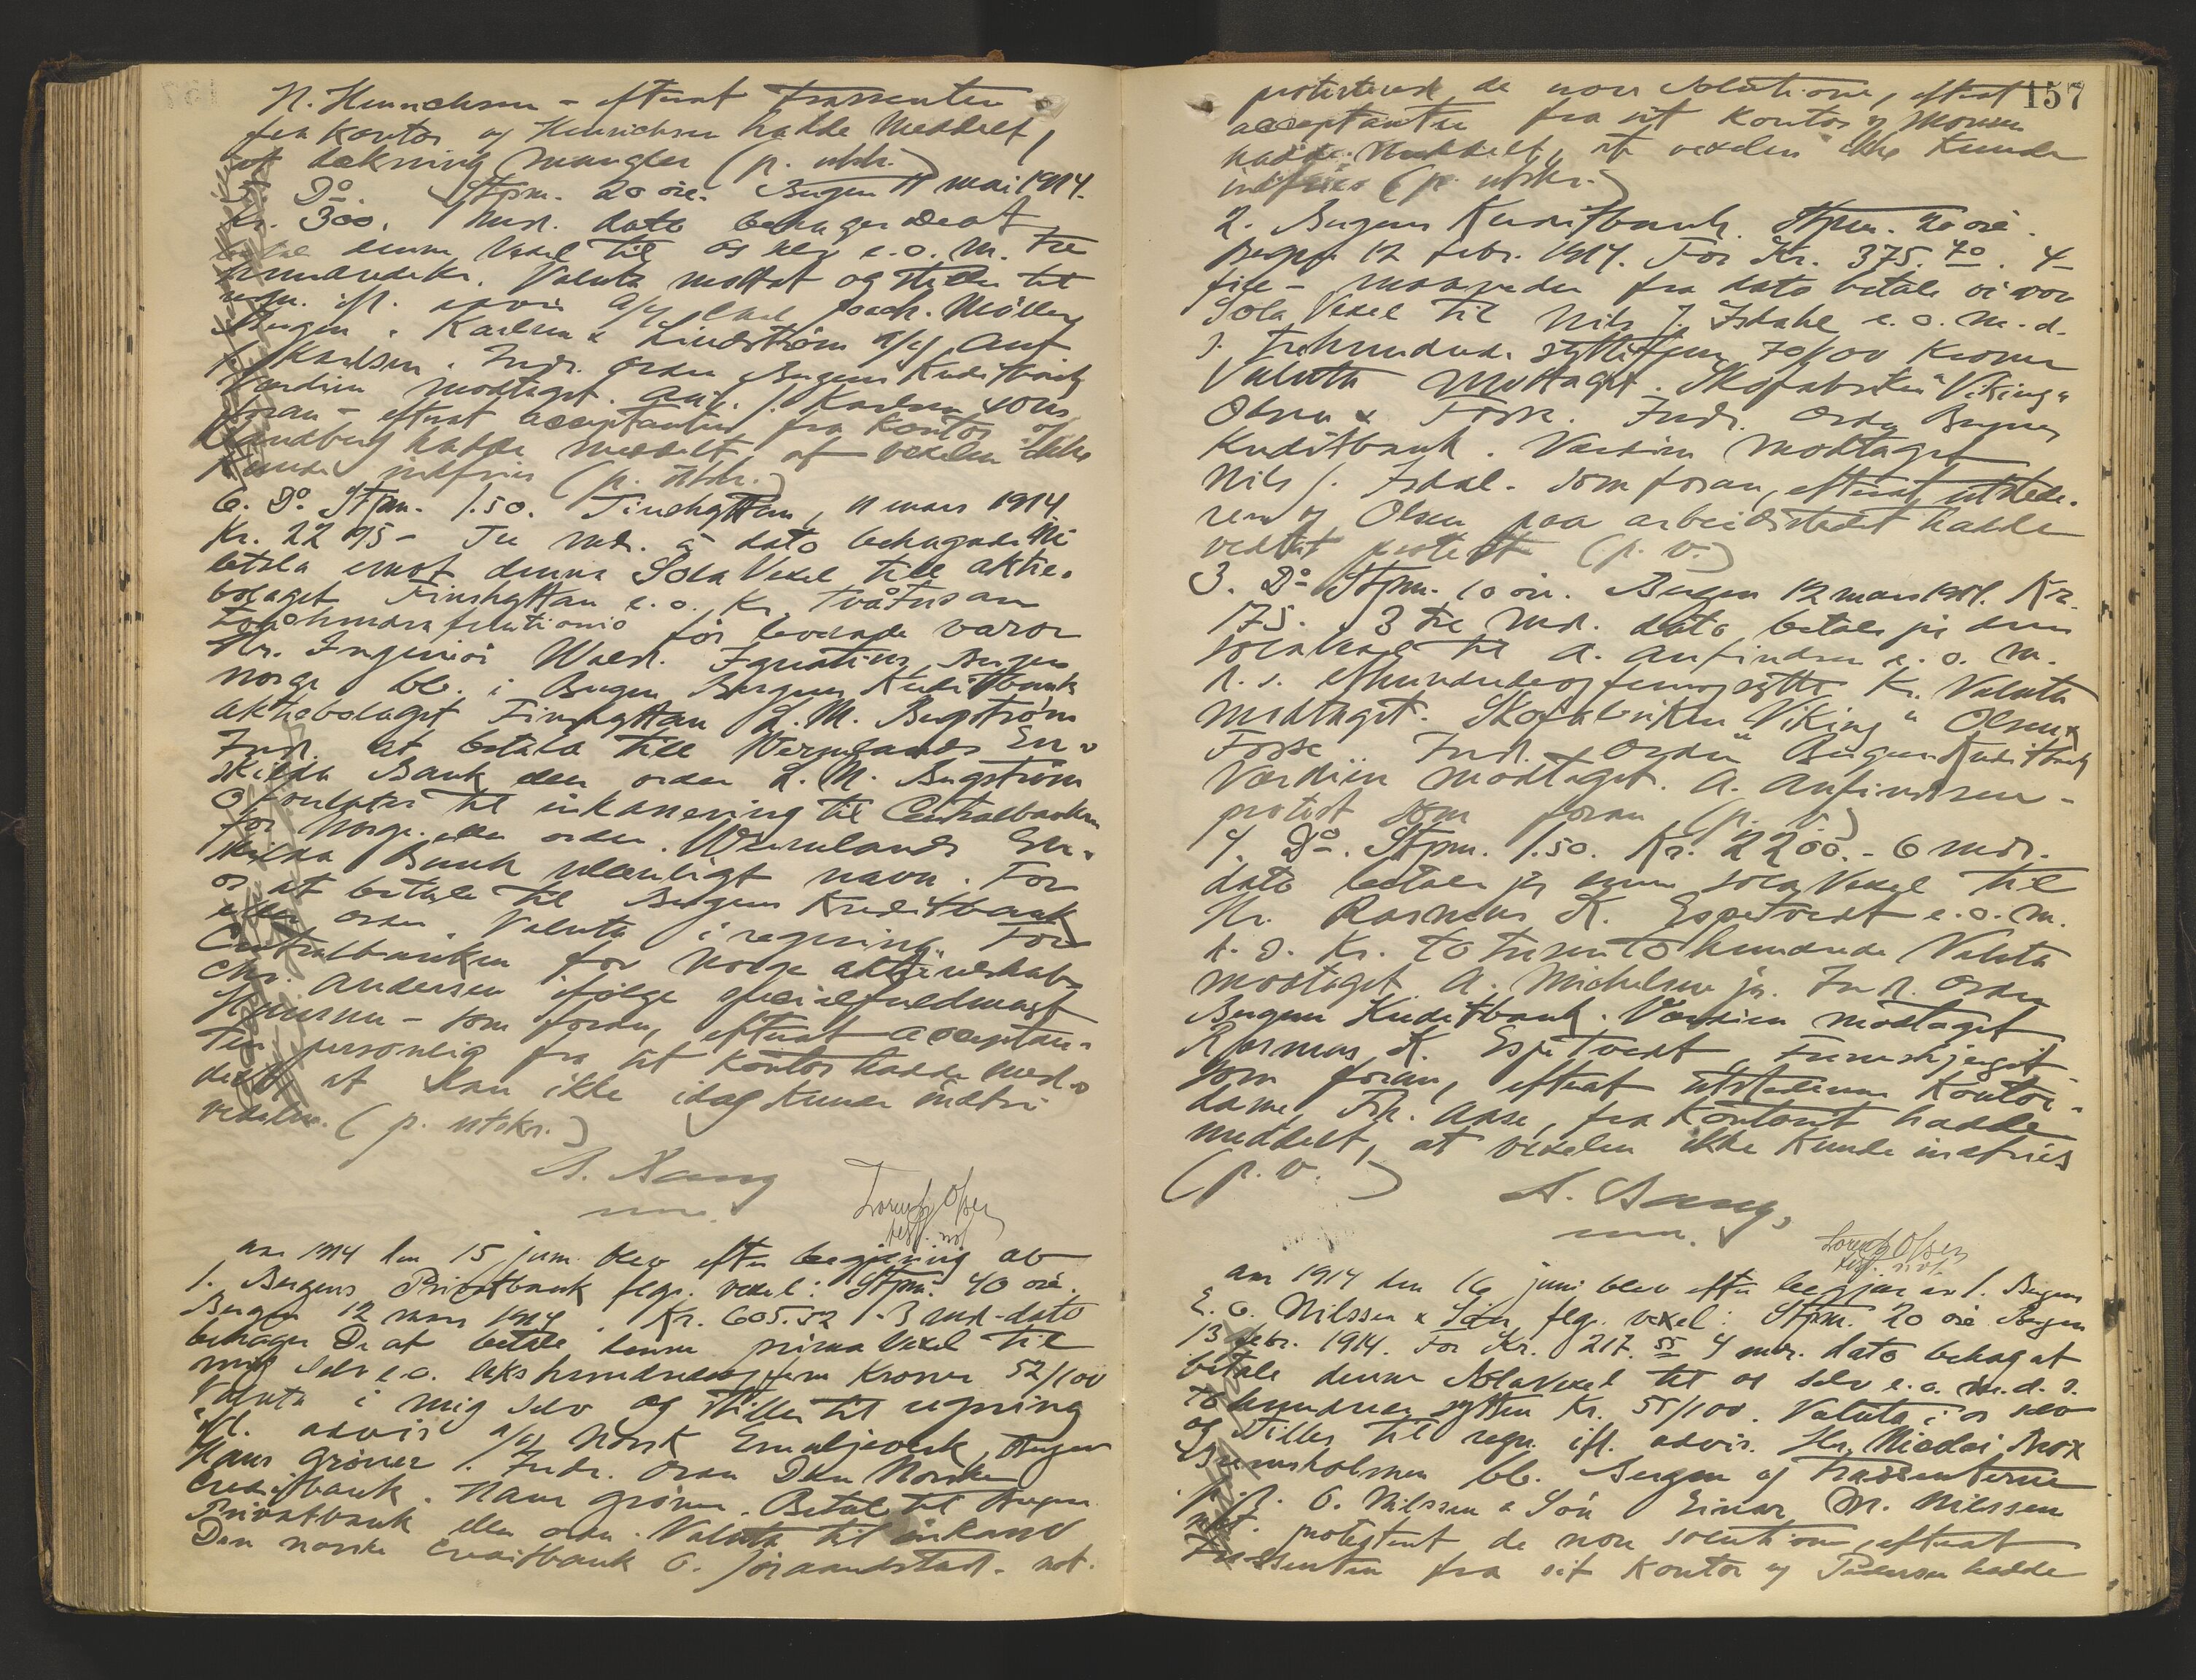 N. Henrichsen - efterat trassenten
fra kontor og Henrichsen hadde meddelt,
at dækning mangler (p. utskr.)
5. Do. Stpm. 20 øre. Bergen 11 mai 1914.
Kr. 300. 1 mdr. dato behager De at
betale denne Vexel til os selv e.o. m. Tre
hundrede kr. Valuta mottat og stilles til
regn. ifl. advis A/S Joach. Møller
Bergen. Karlsen & Lindstrøm A/S Ant
J. Karlsen. Indr. Ordre Bergens Kreditbank
Værdien modtaget. Ant. J. Karlsen som
foran - efterat acceptanten fra kontor og
Sandberg hadde meddelt, at vexelen ikke
kunde indfries (p. utskr.)
6. Do. Stpm. 1.50. Finshyttan, 11 mars 1914
Kr. 2295 - Tre mdr. à dato behagade Ni
betala emot denna Sola Vexel till aktie-
bolaget Finshyttan e.o. Kr. Tvåtusan
för levererade varor
Hr. Ingeniør Wald. Ignatius, Bergen
Norge bb. i Bergen Bergens Kreditbank
aktiebolaget Finshyttan L. M. Bergström
Indr. At betala till Wermlands En-
skilda Bank eller order L. M. Bergström
til inkassering til Centralbanken
for Norge eller order. Wermlands En-
skilda Bank navn. For
os at betale til Bergens Kreditbank
eller ordre. Valuta i regning. For
Centralbanken for Norge aktieselskab
Chr. Andersen ifølge specialfuldmagt
- som foran, efterat acceptan-
ten personlig fra sit kontor hadde med-
delt, at han ikke idag kunde indfri
vexelen. (p. utskr.)
A. Bang
Lorentz Olsen
Aar 1914 den 15 juni blev efter begjæring av
1. Bergens Privatbank flg. vexel: Stpm. 40 øre.
Bergen 12 mars 1914. Kr. 605.52 - 3 md. dato
behager De at betale denne prima Vexel til
mig selv e.o. seks hundredeogfem Kroner 52/100
Valuta i mig selv og stilles til regning
ifl. advis A/S Norsk Emaljeverk, Bergen
Hans Grøner. Indr. Ordre Den Norske
Creditbank. Hans Grøner. Betal til Bergens
Privatbank eller ordre. Valuta til inkasso
Den norske Creditbank O. Jøraandstad. not.
157
protesteret de non solutione, efterat
acceptanten fra sit kontor og Monsen
hadde meddelt, at vexelen ikke kunde
indfries (p. utskr.)
2. Bergens Kreditbank. Stpm. 20 øre.
Bergen 12 febr. 1914. For Kr. 375.70. 4-
fire - maaneder fra dato betale vi vor
Sola Vexel til Nils J. Isdahl e.o. m. d.
s. Trehundrede syttifem 70/100 Kroner
Valuta modtaget. Skofabriken "Viking"
Olsen & Fosse. Indr. Ordre Bergens
Kreditbank. Værdien modtaget
Nils J. Isdal. Som foran, efterat utstede-
ren og Olsen paa arbeidsstedet hadde
vedtat protest (p. v.)
3. Do Stpm. 10 øre. Bergen 12 mars 1914. Kr.
175. 3 tre mdr. dato betale jeg denne
solavexel til A. Anfindsen e.o. m.
d. s. Ethundredeogfemogsytti Kr. Valuta
modtaget. Skofabriken "Viking" Olsen &
Fosse. Indr. Ordre Bergens Kreditbank
Værdien modtaget. A. Anfindsen -
protest som foran (p. v.)
4. Do. Stpm. 1.50. Kr. 2200. - 6 mdr.
dato betaler jeg denne sola Vexel til
Hr. Rasmus K. Espetvedt e.o. m.
d. s. Kr. Totusentohundrede Valuta
modtaget A. Michelsen jr. Indr. Ordre
Bergens Kreditbank. Værdien modtaget
Rasmus K. Espetvedt,
som foran, efterat utstederens kontor-
dame, Frk. Aase, fra kontoret hadde
meddelt, at vexelen ikke kunde indfries
(p. v.)
A. Bang,
Lorentz Olsen
Aar 1914 den 16 juni blev efter begjær. av 1. Bergens
E. O. Nilssen & Søn, flg. vexel: Stpm. 20 øre Bergen
13 febr. 1914. For Kr. 217.55 4 mdr. dato behag at
betale denne Solavexel til os selv e.o. m. d. s.
Tohundrede sytten Kr. 55/100. Valuta i os selv
og stilles til regn. ifl. advis. Hr. Nicolai Brox
bb. Bergen og trassenterne
O. Nilssen & Søn Einar M. Nilssen
not. protesteret de non solutione, efterat
trassenten fra sit kontor og Pedersen hadde